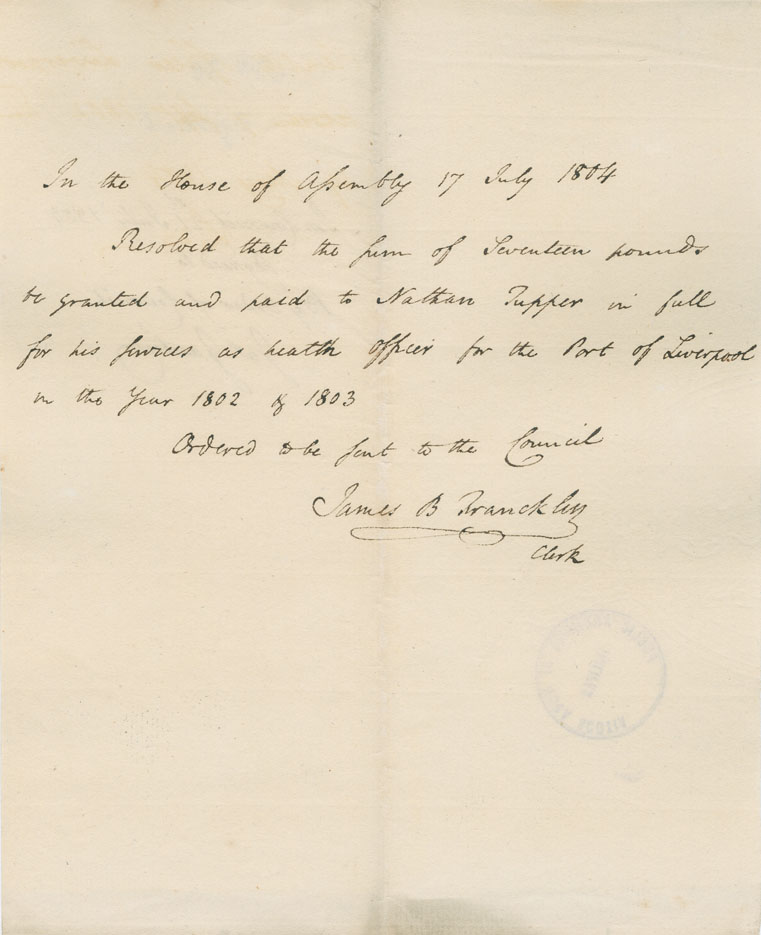 In the House of Assembly 17 July 1804
Resolved that the sum of Seventeen pounds
be granted and paid to Nathan Tupper in full
for his services as health officer for the Port of Liverpool
in the Year 1802 & 1803
Ordered to be sent to the Council
James B Francklin
Clerk